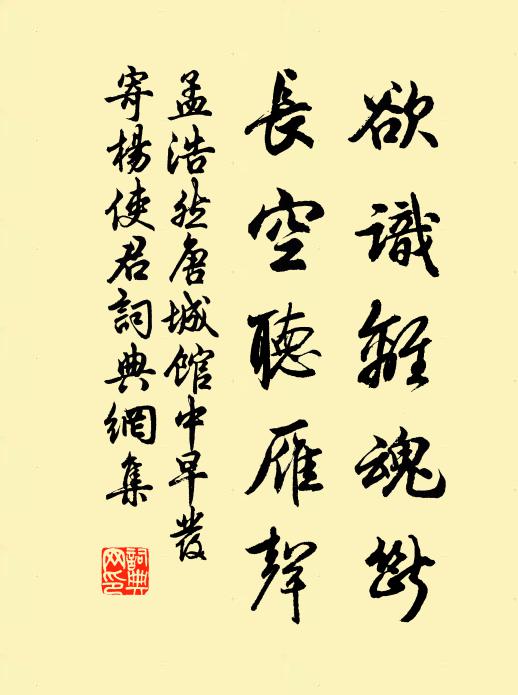 欲識離魂斷
長空聽雁聲
孟浩然唐城館中早發
寄楊使君詞典網集
詞典网印